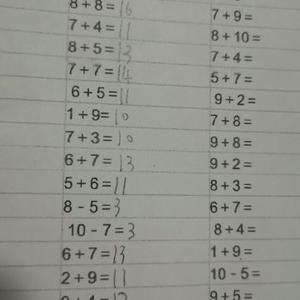 8+8=16
7+4=11
8+5=13
7+7=14
6+5=11
1+9=10
7+3=10
6+7=13
5+6=11
8-5=3
10-7=3
6+7=13
2+9=11
7+9=
8+10=
7+4=
5+7=
9+2=
7+8=
9+8=
9+2=
8+3=
6+7=
8+4=
1+9=
10-5=
9+5=